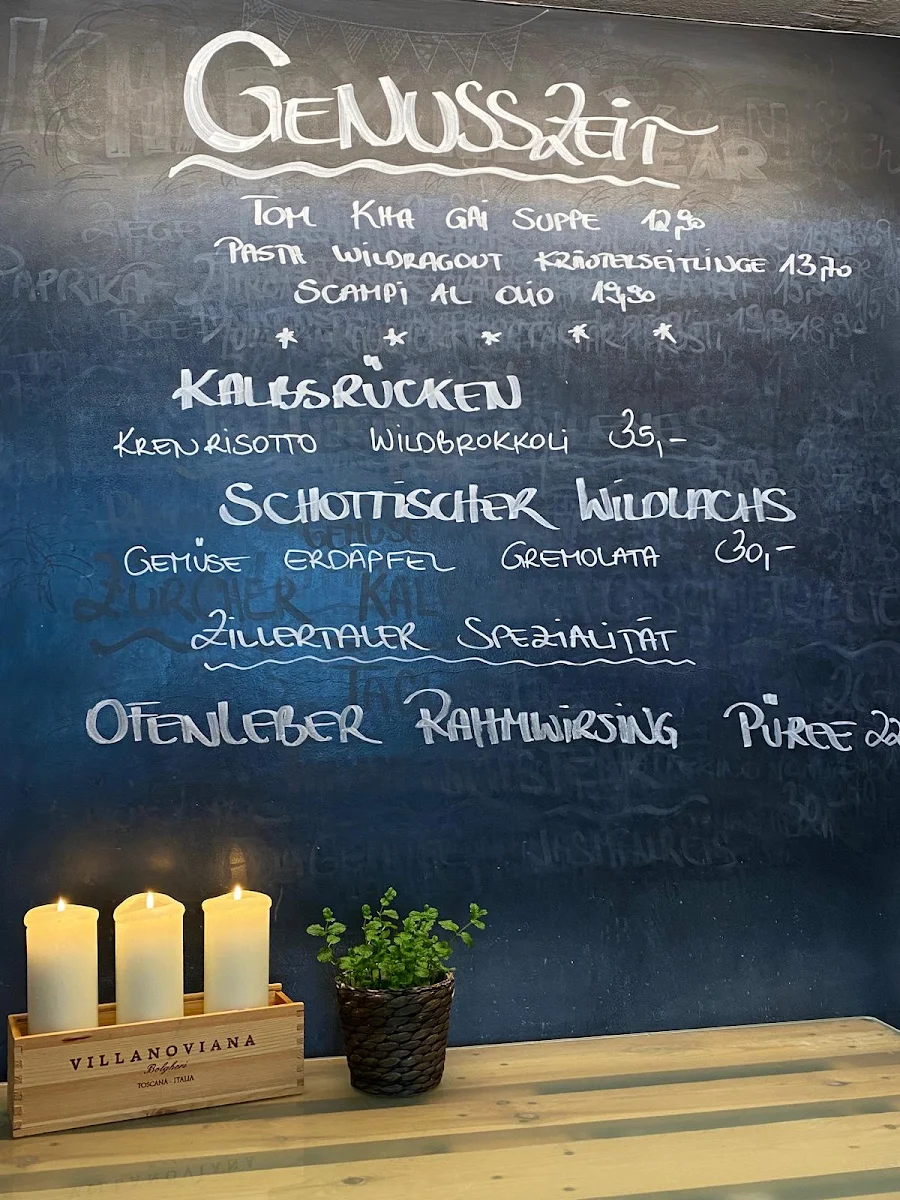 GENUSSZEIT
TOM KHA GAI SUPPE 12,90
PASTA WILDRAGOUT KRÄUTERSEITLINGE 13,70
SCAMPI AL OLIO 19,90
* * * * *
KALBSRÜCKEN
KRENRISOTTO WILDBROKKOLI 35,-
SCHOTTISCHER WILDLACHS
GEMÜSE ERDÄPFEL GREMOLATA 30,-
ZILLERTALER SPEZIALITÄT
OFENLEBER RAHMWIRSING PÜREE 22
VILLANOVIANA
Bolgheri
TOSCANA - ITALIA